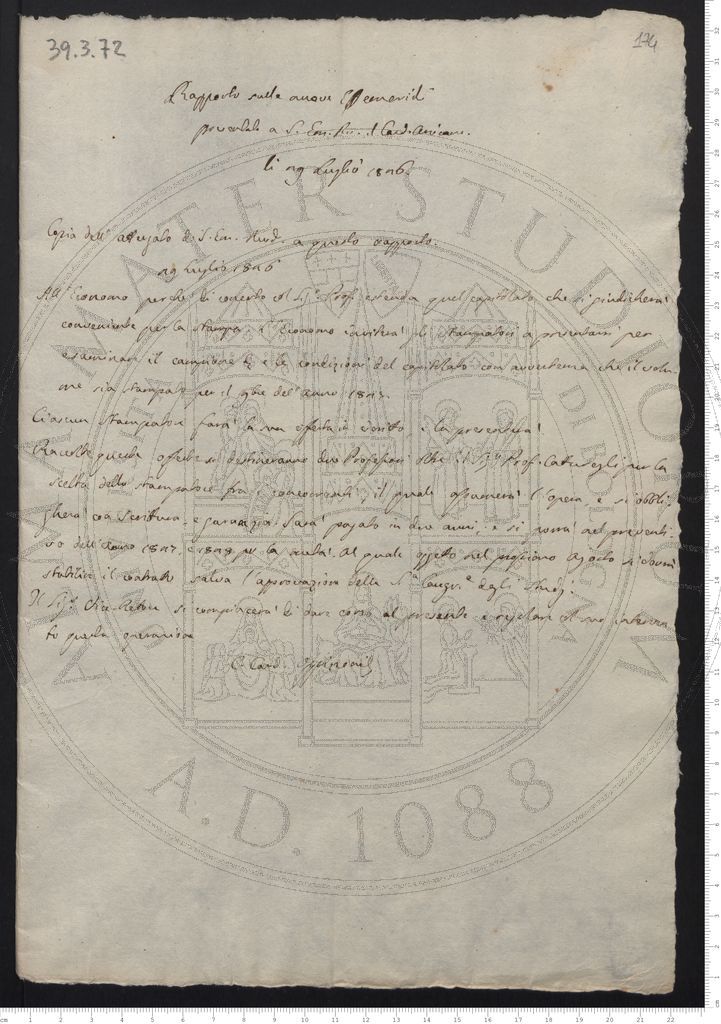 39.3.72
174
Rapporto sulle nuove Effemeridi
presentato a S. Em. Rev. il Card.
li 29 Luglio 1846.
Copia dell' attergato di S. Em. Rev. a questo rapporto.
29 luglio 1846
All' Economo perchè di concerto col Sig. Prof. estenda quel capitolato che si giudicherà
conveniente per la stampa. L' Economo inviterà gli stampatori a presentarsi per
esaminare il campione e le condizioni del capitolato con avvertenza che il volu-
me sia stampato per il 9bre dell' anno 1847.
Ciascun stampatore farà la sua offerta in iscritto, e la presenterà.
Raccolte queste offerte si destineranno due Professori oltre il Sig. Prof. per la
scelta dello stampatore fra i concorrenti, il quale assumerà l' opera, e si obbli-
gherà con Scrittura, e garanzia. Sarà pagato in due anni, e si porrà nel preventi-
vo dell' anno 1847, e 1848 per la metà. Al quale oggetto nel prossimo Agosto si dovrà
stabilire il contratto salva l' approvazione della S. Congr. degli Studj.
Il Sig. Vice-Rettore si compiacerà di dare corso al presente e
to questa operazione
C. Card. Oppizzoni
ALMA MATER STUDIORUM
A.D. 1088